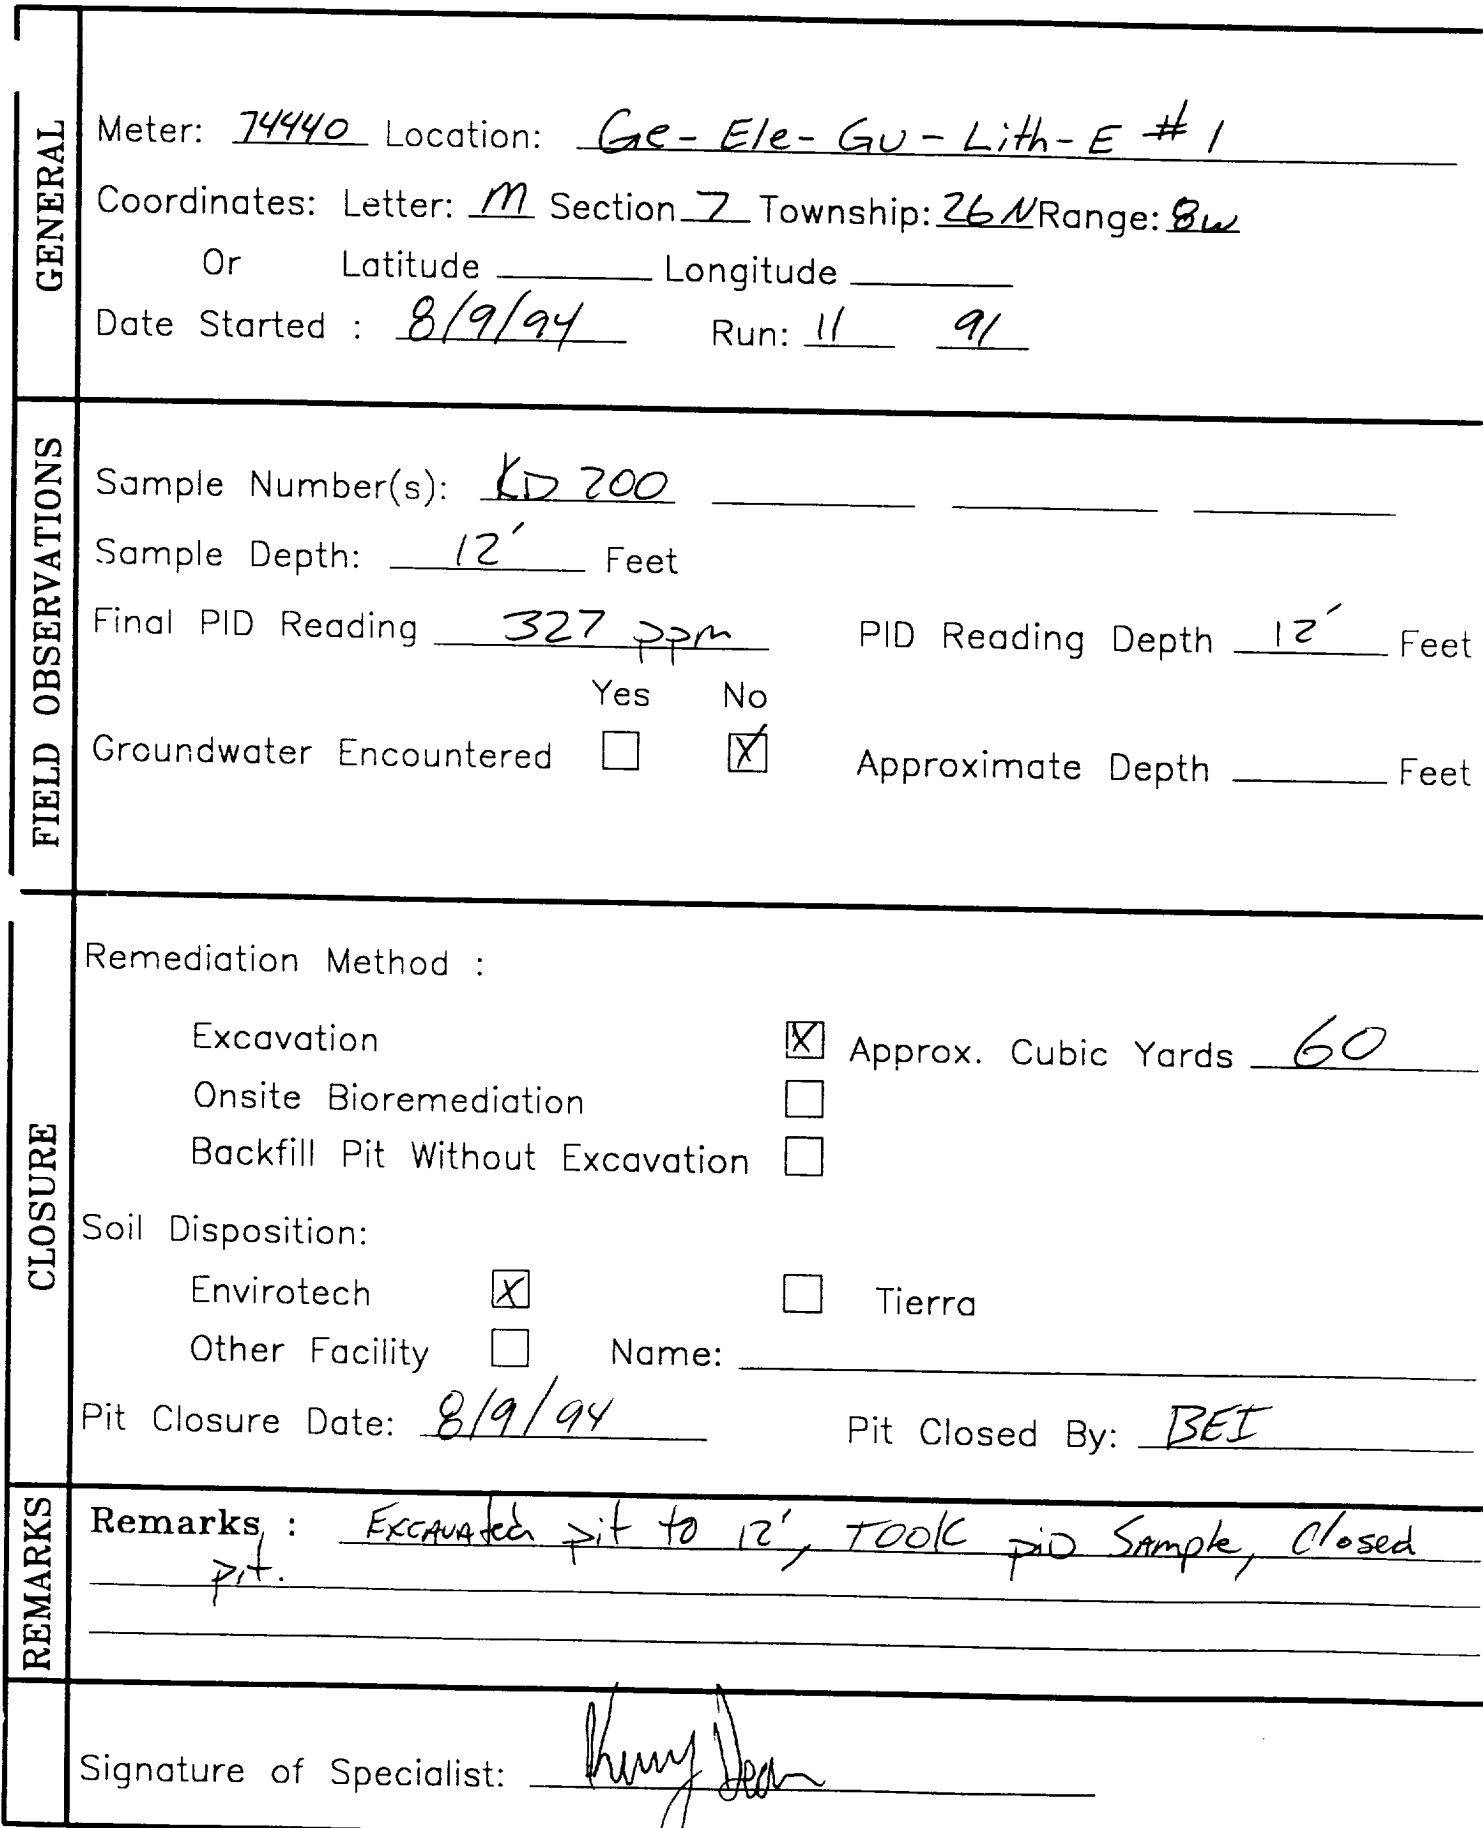 GENERAL
Meter: 74440 Location: Ge-Ele-Gu-Lith-E #1
Coordinates: Letter: M Section 7 Township: 26N Range: 8W
Or Latitude Longitude
Date Started : 8/9/94 Run: 11 91
FIELD OBSERVATIONS
Sample Number(s): KD 200
Sample Depth: 12' Feet
Final PID Reading 327 ppm PID Reading Depth 12' Feet
Yes No
Groundwater Encountered ☐ ☒ Approximate Depth Feet
CLOSURE
Remediation Method :
Excavation ☒ Approx. Cubic Yards 60
Onsite Bioremediation ☐
Backfill Pit Without Excavation ☐
Soil Disposition:
Envirotech ☒ ☐ Tierra
Other Facility ☐ Name:
Pit Closure Date: 8/9/94 Pit Closed By: BEI
REMARKS
Remarks : Excavated pit to 12', Took PID Sample, Closed
pit.
Signature of Specialist: Kenny Dean